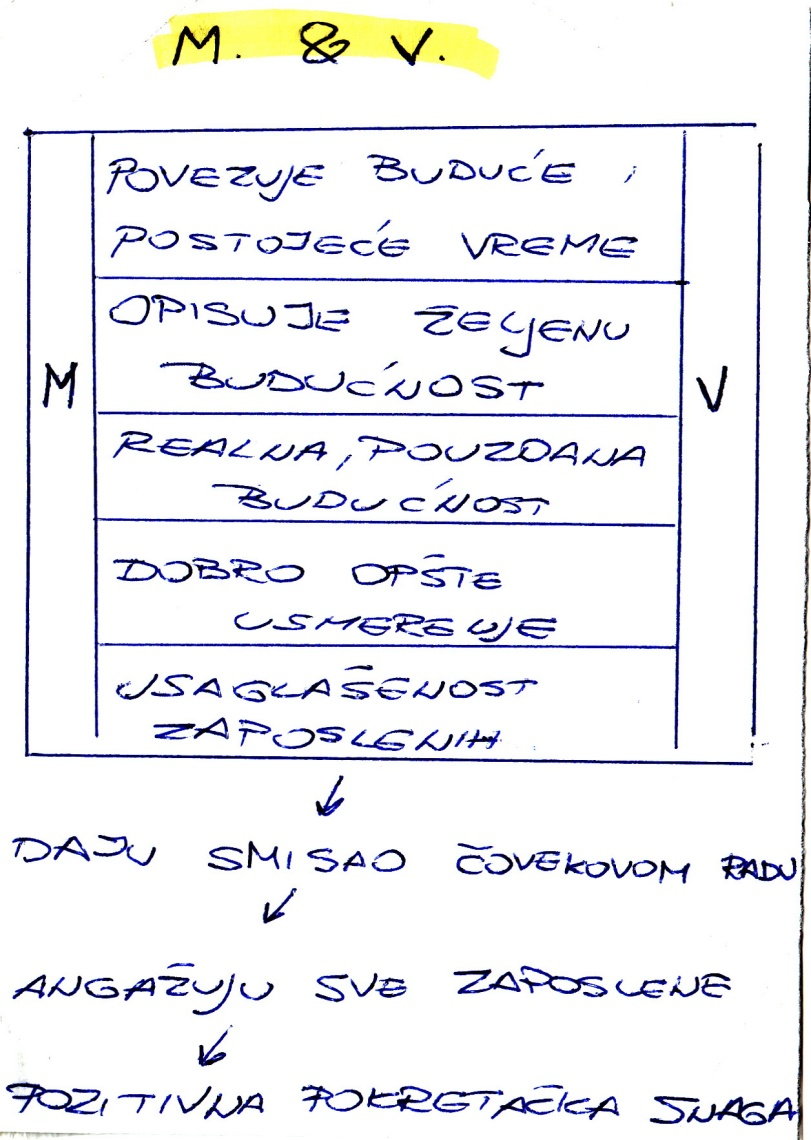 M. & V.
POVEZUJE BUDUĆE i
POSTOJEĆE VREME
OPISUJE ŽELJENU
BUDUĆNOST
M
V
REALNA, POUZDANA
BUDUĆNOST
DOBRO OPŠTE
USMERENJE
USAGLAŠENOST
ZAPOSLENIH
DAJU SMISAO ČOVEKOVOM RADU
ANGAŽUJU SVE ZAPOSLENE
POZITIVNA POKRETAČKA SNAGA